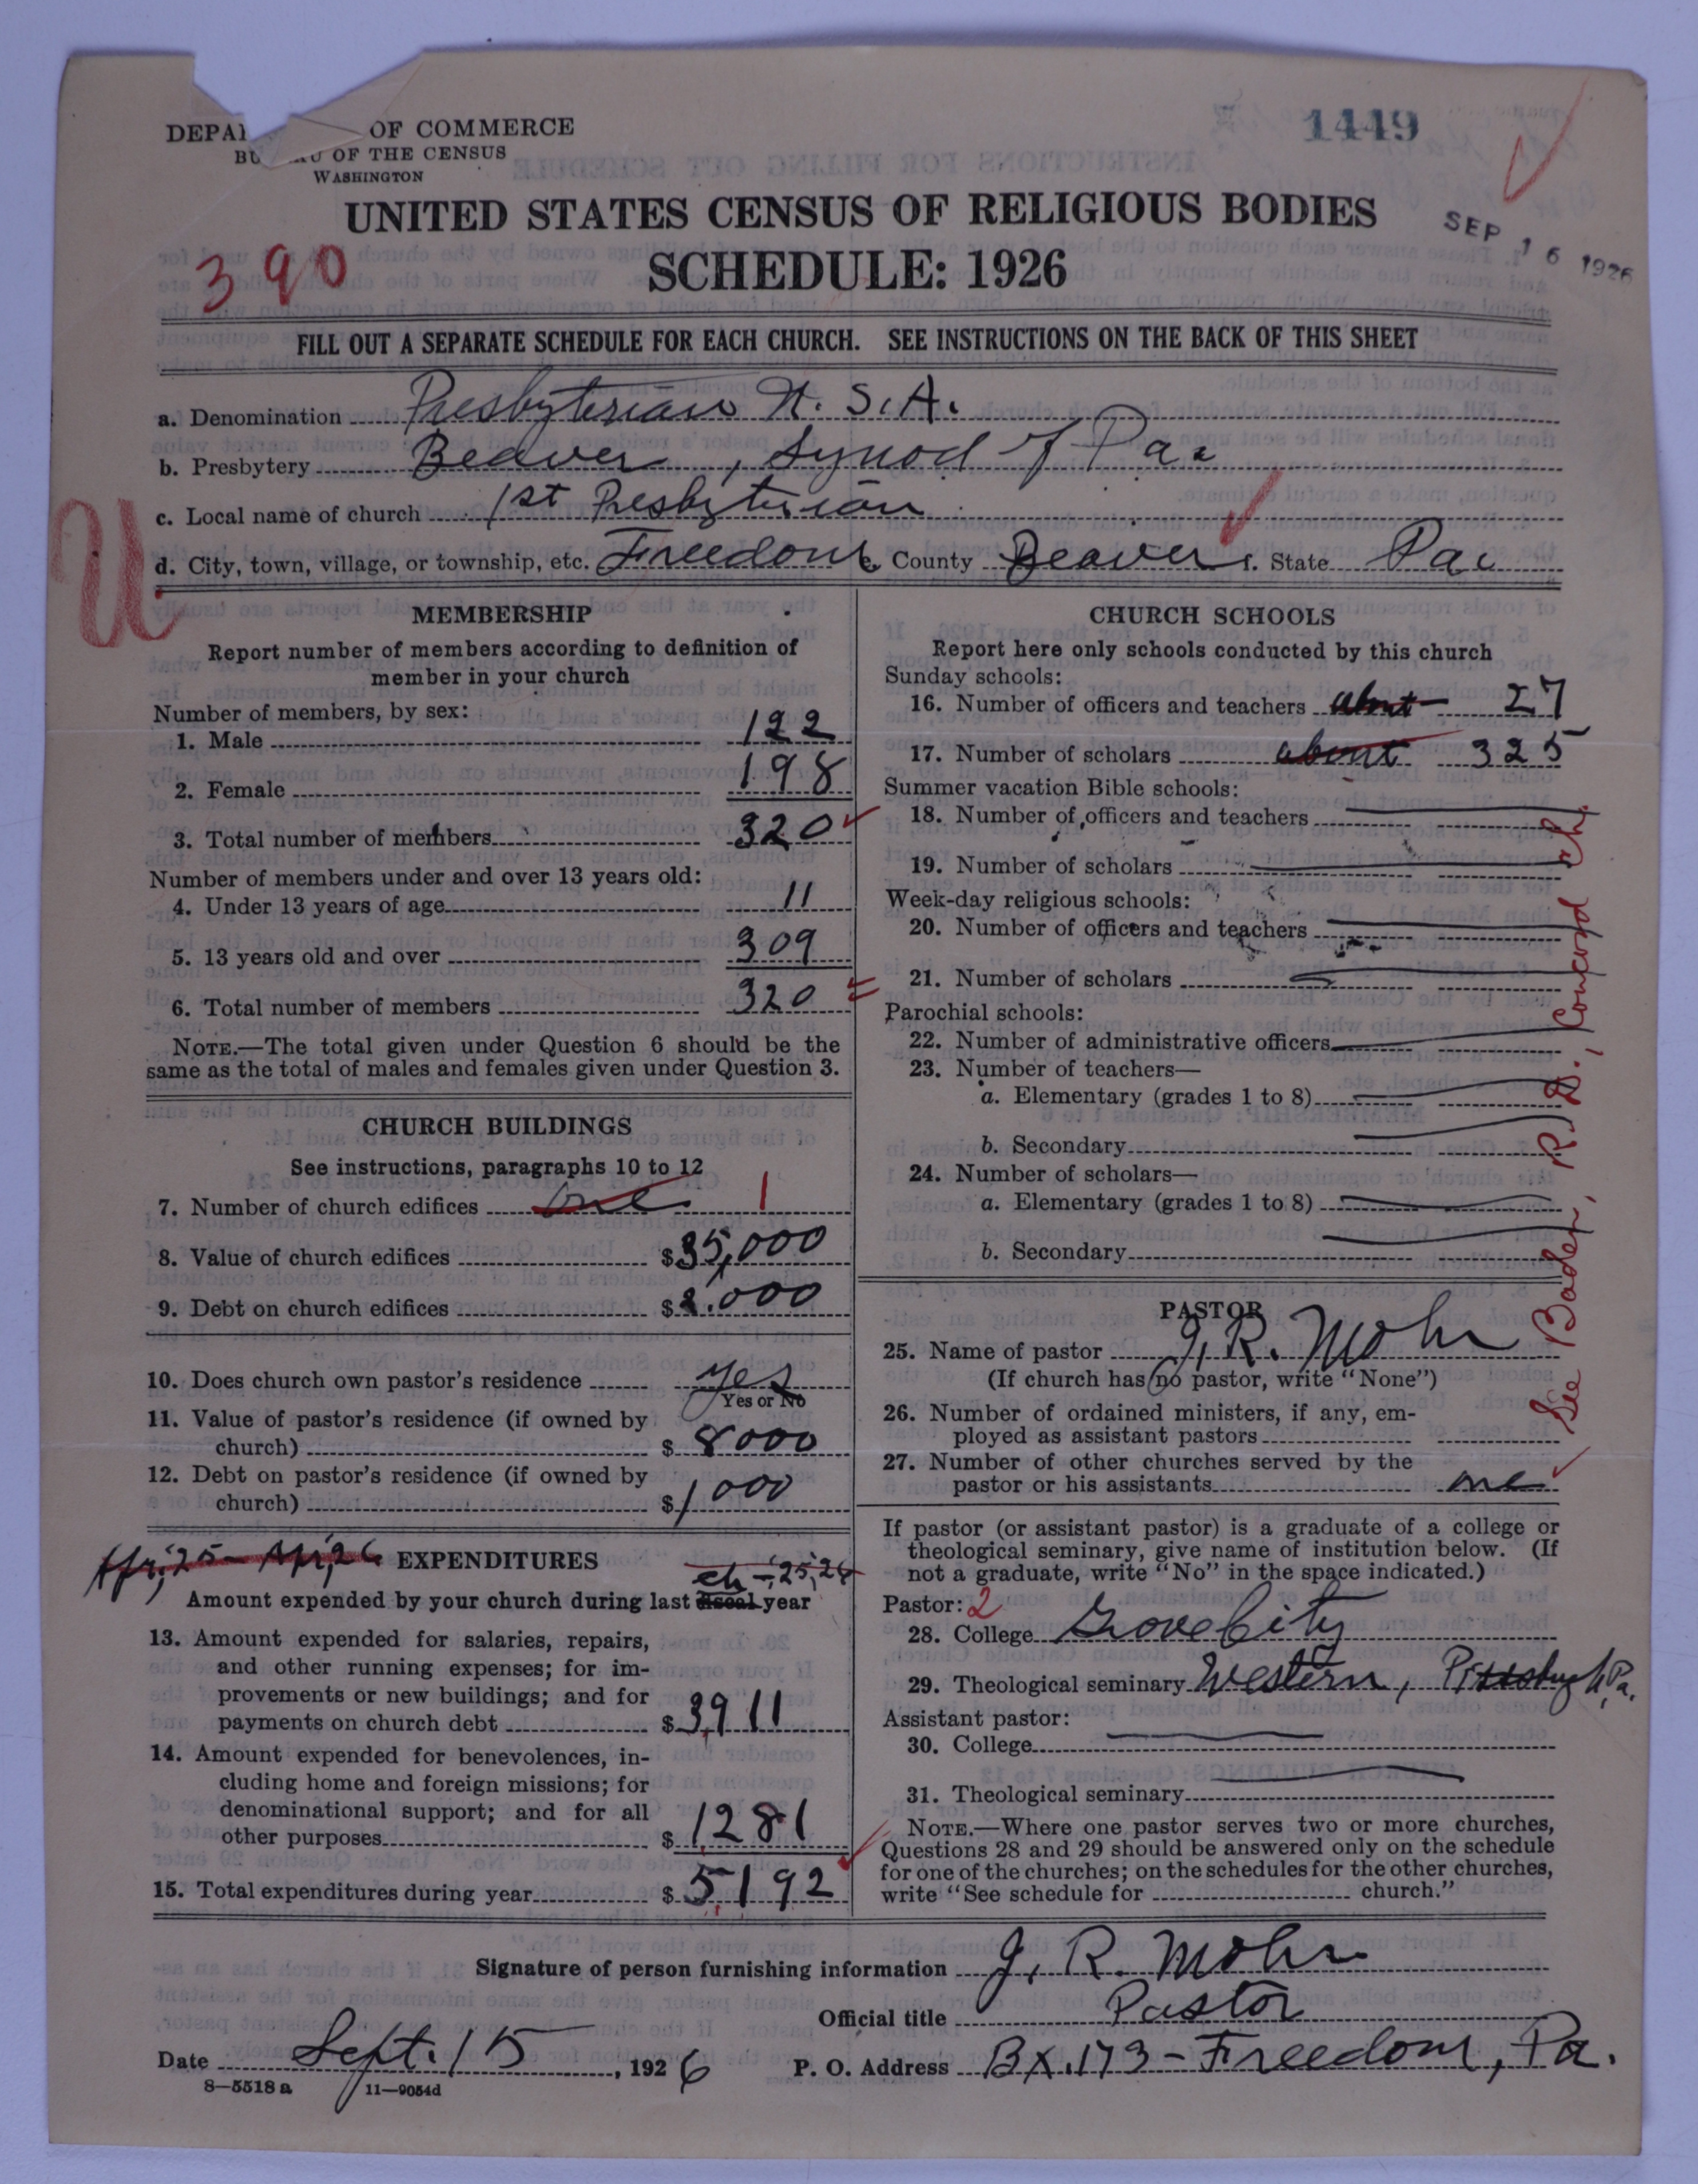 1449
DEPA OF COMMERCE
BU U OF THE CENSUS
WASHINGTON
UNITED STATES CENSUS OF RELIGIOUS BODIES
SEP 16 1926
390
SCHEDULE: 1926
FILL OUT A SEPARATE SCHEDULE FOR EACH CHURCH. SEE INSTRUCTIONS ON THE BACK OF THIS SHEET
a. Denomination Presbyterian U. S. A.
b. Presbytery Beaver, Synod of Pa.
c. Local name of church 1st Presbyterian
U
d. City, town, village, or township, etc. Freedom e. County Beaver f. State Pa.
MEMBERSHIP
Report number of members according to definition of
member in your church
Number of members, by sex:
1. Male 122
2. Female 198
3. Total number of members 320
Number of members under and over 13 years old:
4. Under 13 years of age 11
5. 13 years old and over 309
6. Total number of members 320
NOTE.—The total given under Question 6 should be the
same as the total of males and females given under Question 3.
CHURCH BUILDINGS
See instructions, paragraphs 10 to 12
7. Number of church edifices one 1
8. Value of church edifices $35,000
9. Debt on church edifices $2,000
10. Does church own pastor's residence yes
Yes or No
11. Value of pastor's residence (if owned by
church) $ 8000
12. Debt on pastor's residence (if owned by
church) $ 1000
Apr. '25 - Apr. '26 EXPENDITURES
ch - '25, '26
Amount expended by your church during last fiscal year
13. Amount expended for salaries, repairs,
and other running expenses; for im-
provements or new buildings; and for
payments on church debt $ 3911
14. Amount expended for benevolences, in-
cluding home and foreign missions; for
denominational support; and for all
other purposes $ 1281
15. Total expenditures during year $ 5192
CHURCH SCHOOLS
Report here only schools conducted by this church
Sunday schools:
16. Number of officers and teachers about 27
17. Number of scholars about 325
Summer vacation Bible schools:
18. Number of officers and teachers
19. Number of scholars
Week-day religious schools:
20. Number of officers and teachers
21. Number of scholars
Parochial schools:
22. Number of administrative officers
23. Number of teachers—
a. Elementary (grades 1 to 8)
b. Secondary
24. Number of scholars—
a. Elementary (grades 1 to 8)
b. Secondary
See Baden, R. D., Concord Ch.
PASTOR
25. Name of pastor J. R. Mohr
(If church has no pastor, write "None")
26. Number of ordained ministers, if any, em-
ployed as assistant pastors
27. Number of other churches served by the
pastor or his assistants one
If pastor (or assistant pastor) is a graduate of a college or
theological seminary, give name of institution below. (If
not a graduate, write "No" in the space indicated.)
Pastor: 2
28. College Grove City
29. Theological seminary Western, Pittsburgh, Pa.
Assistant pastor:
30. College
31. Theological seminary
NOTE.—Where one pastor serves two or more churches,
Questions 28 and 29 should be answered only on the schedule
for one of the churches; on the schedules for the other churches,
write "See schedule for church."
Signature of person furnishing information J. R. Mohr
Official title Pastor
Date Sept. 15, 1926 P. O. Address Bx. 173 - Freedom, Pa.
8—5518 a 11—9054d